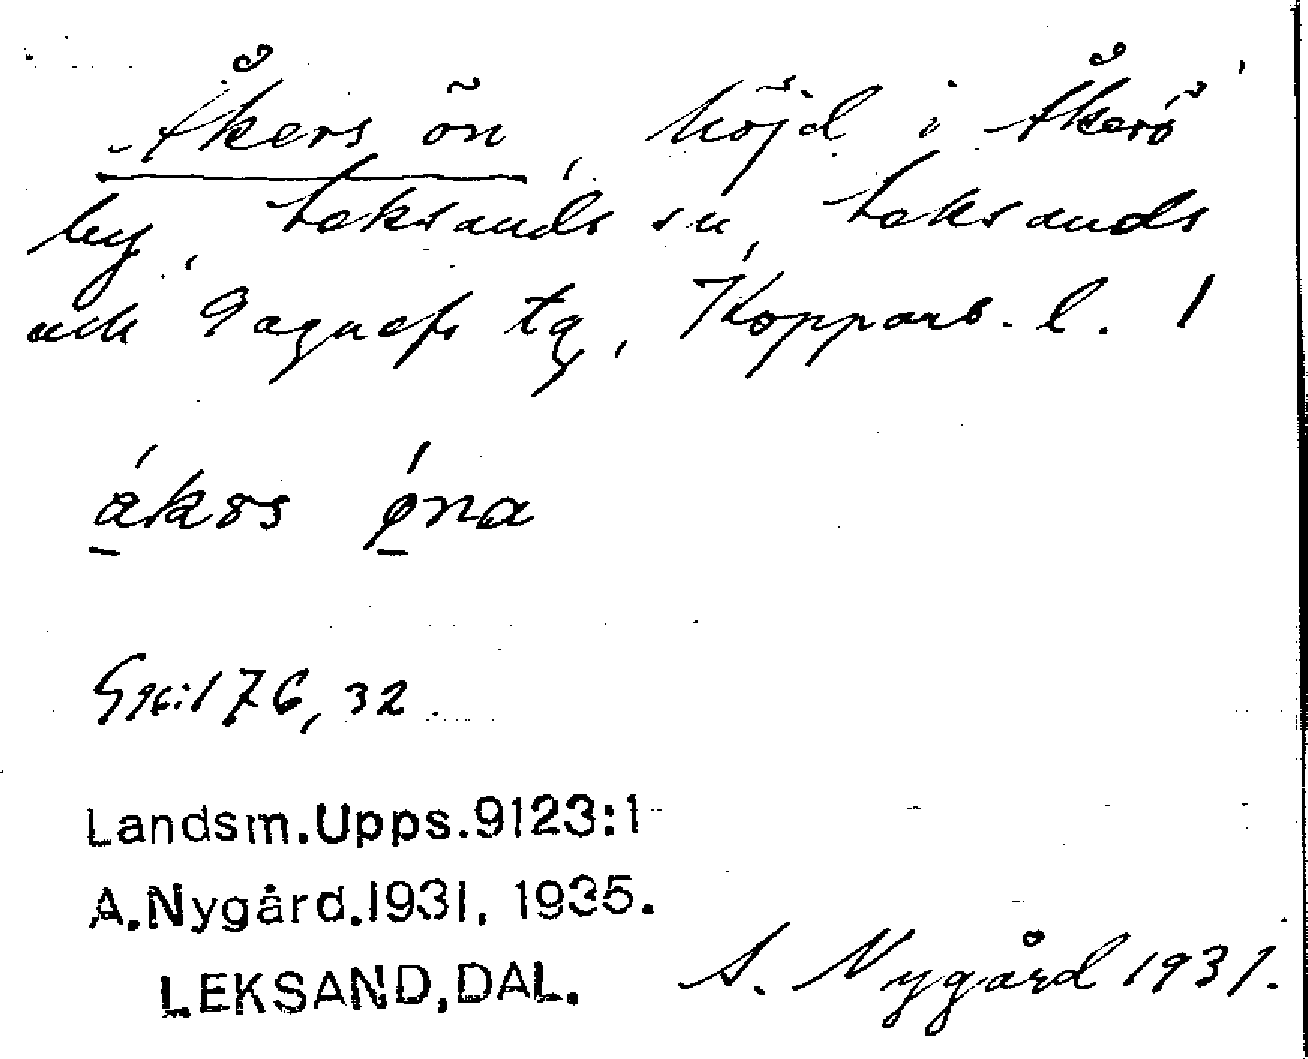 Åkers ön, höjd i Åkerö
by, Leksands sn, Leksands
och Gagnefs tg, Kopparb. l.
ákɞs ǿna
76, 32
Landsm.Upps.9123:1
A.Nygård.1931, 1935.
LEKSAND,DAL.
A. Nygård 1931.